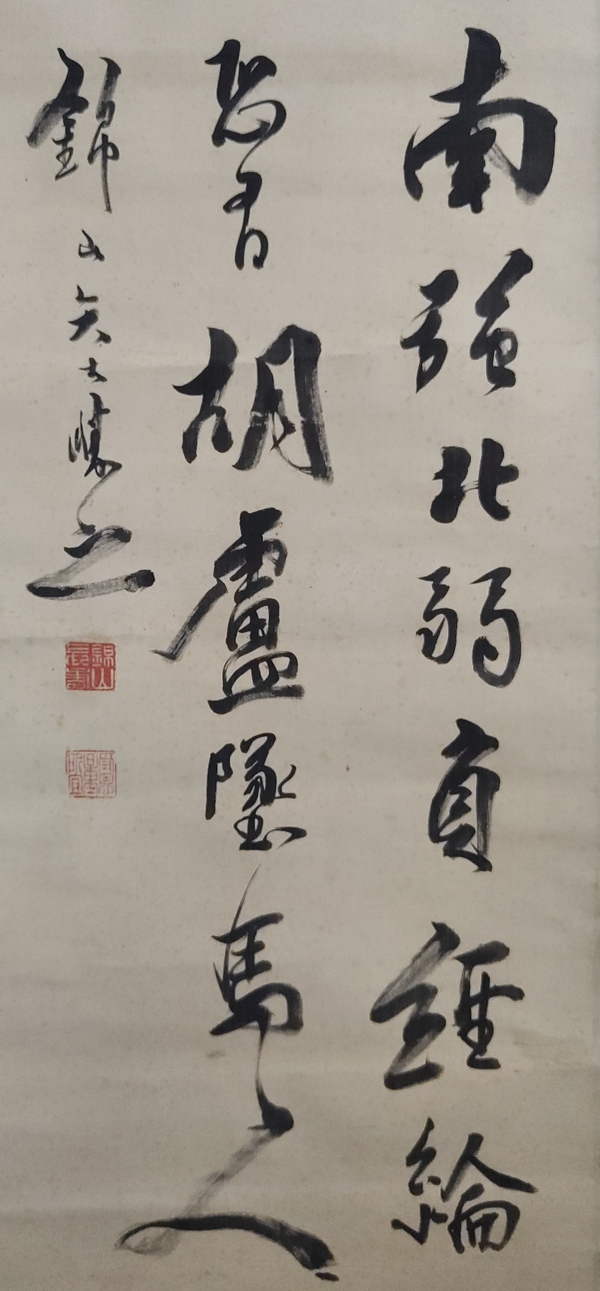 南強北弱負經綸
恐有胡盧墜馬人
錦山矢土勝之